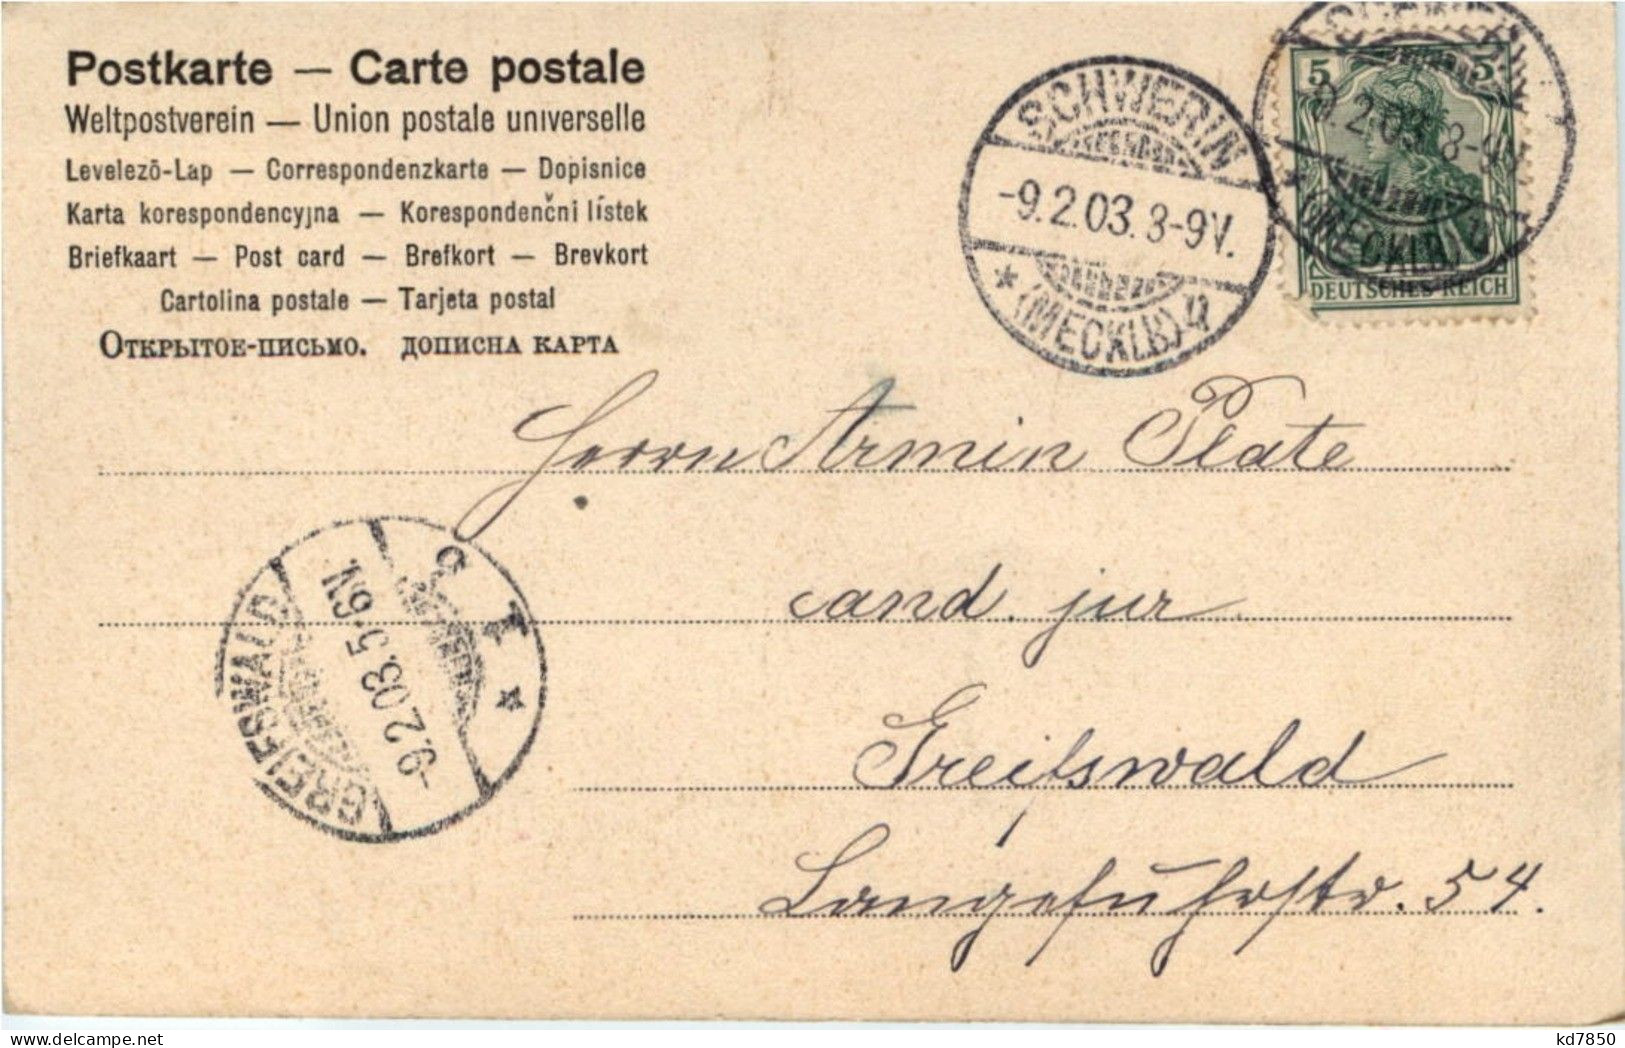 Postkarte — Carte postale
Weltpostverein — Union postale universelle
Levelezõ-Lap — Correspondenzkarte — Dopisnice
Karta korespondencyjna — Korespondenčni lístek
Briefkaart — Post card — Brefkort — Brevkort
Cartolina postale — Tarjeta postal
Открытое-письмо. дописна карта
SCHWERIN
-9.2.03.8-9V.
* (MECKLB)
5 5
2.03. 8-9V.
(MECKLB)
DEUTSCHES REICH
Herrn Armin Plate
cand. jur
Greifswald
Langefuhrstr. 54.
GREIFSWALD
-9.2.03.5-6V.
* 1 c
kd7850